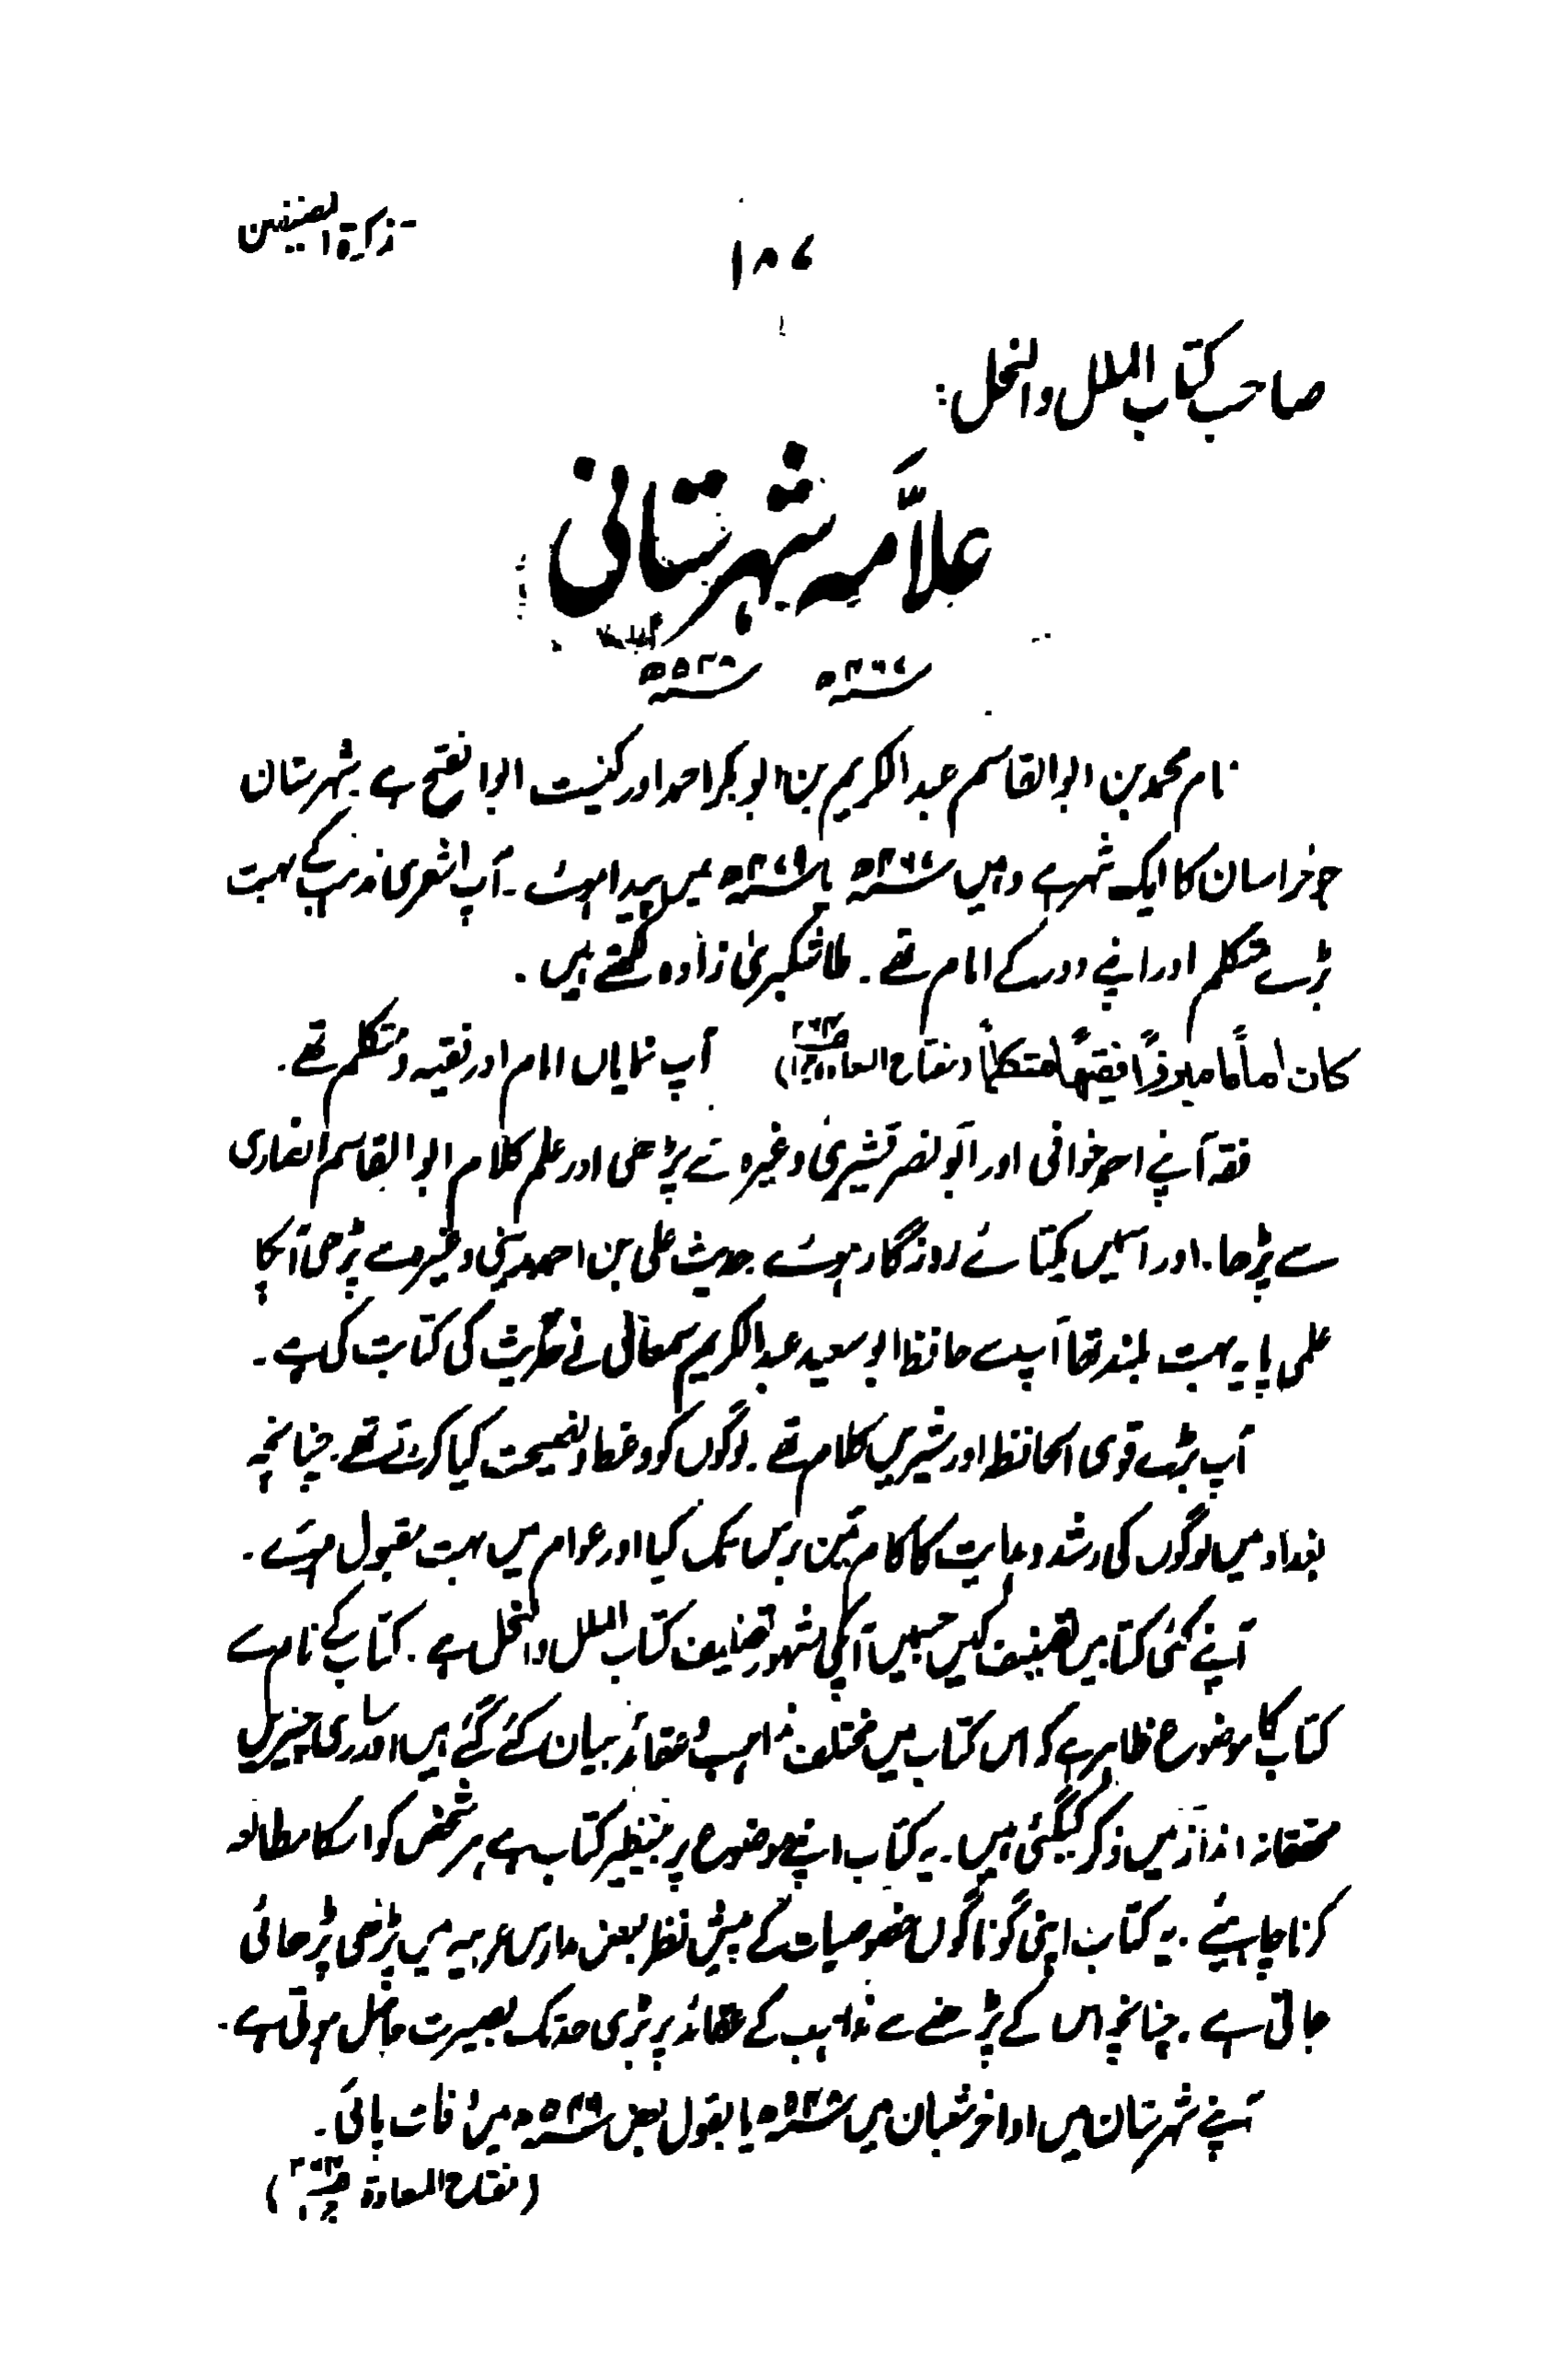 تذکرۃ المصنفین
۱۸۷
صاحب کتاب الملل والنحل:
علاَّمہ شہرستانی
۴۶۷ھ ۵۴۸ھ
نام محمد بن ابوالقاسم عبدالکریم بن ابوبکر احمد اور کنیت ابوالفتح ہے۔ شہرستان
جو خراسان کا ایک شہر ہے وہیں ۴۶۷ھ یا ۴۷۹ھ میں پیدا ہوئے۔ آپ اشعری مذہب کے بہت
بڑے متکلم اور اپنے دور کے امام تھے۔ طاشکبریٰ زادہ لکھتے ہیں۔
کان اماماً مبرزاً فقیہاً متکلماً (مفتاح السعادۃ) آپ نمایاں امام اور فقیہ و متکلم تھے۔
فقہ آپنے احمد خوافی اور ابونصر قشیری وغیرہ سے پڑھی اور علم کلام ابوالقاسم انصاری
سے پڑھا۔ اور اسمیں یکتائے روزگار ہوئے۔ حدیث علی بن احمد مدینی وغیرہ سے پڑھی آپکا
علمی پایہ بہت بلند تھا آپ سے حافظ ابوسعید عبدالکریم سمعانی نے حدیث کی کتابت کی ہے۔
آپ بڑے قوی الحافظ اور شیریں کلام تھے۔ لوگوں کو وعظ و نصیحت کیا کرتے تھے۔ چنانچہ
بغداد میں لوگوں کی رشد و ہدایت کا کام تین برس تک کیا اور عوام میں بہت مقبول ہوئے۔
آپنے کئی کتابیں تصنیف کیں جسمیں آپکی مشہور تصنیف کتاب الملل والنحل ہے۔ کتاب کے نام سے
کتاب کا موضوع ظاہر ہے کہ اس کتاب میں مختلف مذاہب و عقائد بیان کئے گئے ہیں اور ساری چیزیں
محققانہ انداز میں ذکر کیگئی ہیں۔ یہ کتاب اپنے موضوع پر بینظیر کتاب ہے ہر شخص کو اسکا مطالعہ
کرنا چاہیئے۔ یہ کتاب اپنی گوناگوں خصوصیات کے پیش نظر بعض مدارس عربیہ میں پڑھی پڑھائی
جاتی ہے۔ چنانچہ اس کے پڑھنے سے مذاہب کے عقائد پر بڑی حد تک بصیرت حاصل ہوتی ہے۔
آپنے شہرستان میں اواخر شعبان میں ۵۴۸ھ یا بقول بعض ۵۴۹ھ میں وفات پائی۔
(مفتاح السعادۃ)